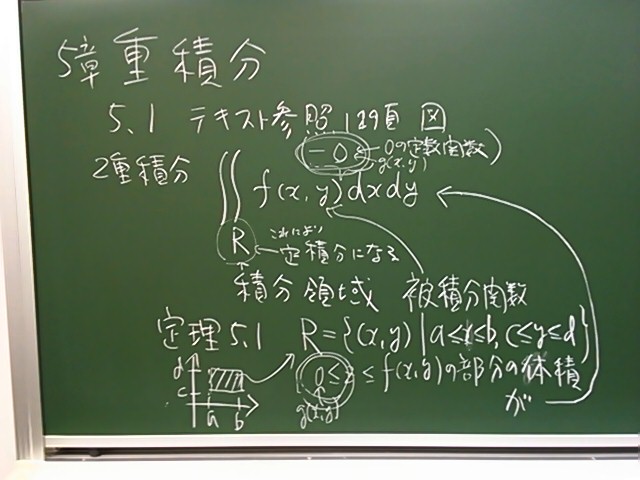 5章重積分
5.1 テキスト参照 129頁 図
- 0 ← 0の定数関数)
g(x,y)
2重積分 ∬ f(x,y)dxdy
R ← これにより
定積分になる
積分領域 被積分関数
定理5.1 R={(x,y)|a≤x≤b, c≤y≤d}
0≤z≤f(x,y)の部分の体積
が
g(x,y)
d
c
a b